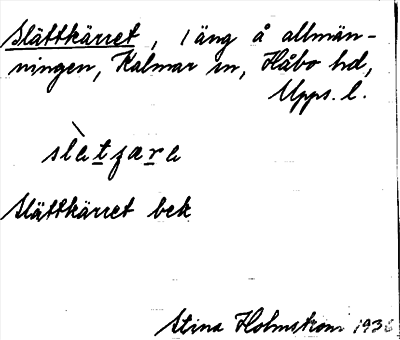 Slättkärret, 1 äng å allmän-
ningen, Kalmar sn, Håbo hd,
Upps. l.
slètꞔære
Slättkärret bek.
Stina Holmstrom 1936